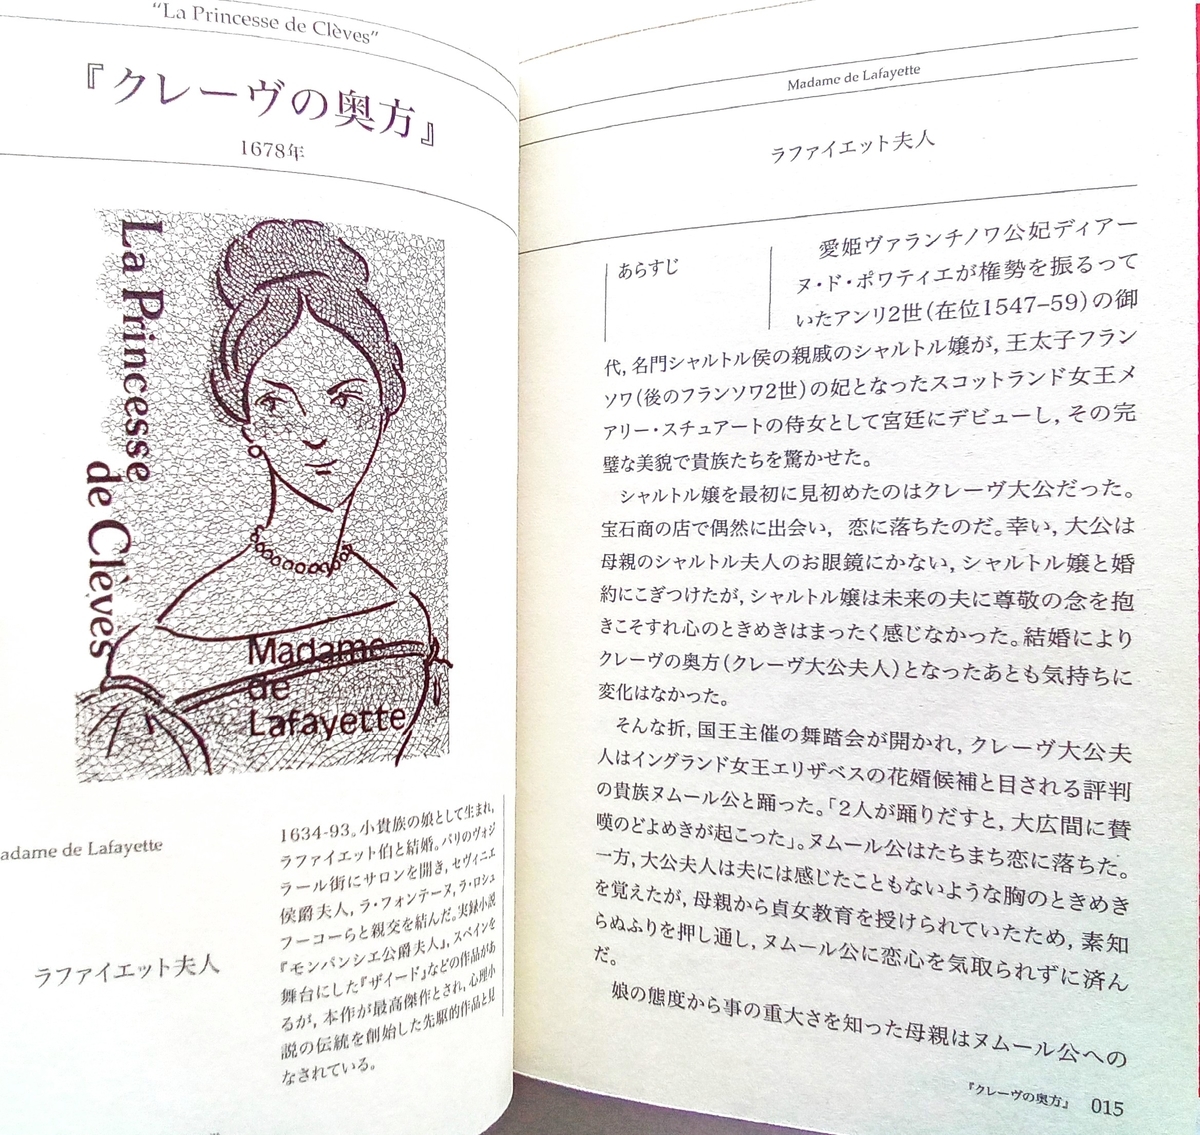 “La Princesse de Clèves”
『クレーヴの奥方』
1678年
La Princesse
de Clèves
Madame
de
Lafayette
adame de Lafayette
ラファイエット夫人
1634-93。小貴族の娘として生まれ,
ラファイエット伯と結婚。パリのヴォジ
ラール街にサロンを開き, セヴィニエ
侯爵夫人, ラ・フォンテーヌ, ラ・ロシュ
フーコーらと親交を結んだ。実録小説
『モンパンシエ公爵夫人』, スペインを
舞台にした『ザイード』などの作品があ
るが, 本作が最高傑作とされ, 心理小
説の伝統を創始した先駆的作品と見
なされている。
Madame de Lafayette
ラファイエット夫人
あらすじ
愛姫ヴァランチノワ公妃ディアー
ヌ・ド・ポワティエが権勢を振るって
いたアンリ2世(在位1547–59)の御
代, 名門シャルトル侯の親戚のシャルトル嬢が, 王太子フラン
ソワ(後のフランソワ2世)の妃となったスコットランド女王メ
アリー・スチュアートの侍女として宮廷にデビューし, その完
璧な美貌で貴族たちを驚かせた。
シャルトル嬢を最初に見初めたのはクレーヴ大公だった。
宝石商の店で偶然に出会い, 恋に落ちたのだ。幸い, 大公は
母親のシャルトル夫人のお眼鏡にかない, シャルトル嬢と婚
約にこぎつけたが, シャルトル嬢は未来の夫に尊敬の念を抱
きこそすれ心のときめきはまったく感じなかった。結婚により
クレーヴの奥方(クレーヴ大公夫人)となったあとも気持ちに
変化はなかった。
そんな折, 国王主催の舞踏会が開かれ, クレーヴ大公夫
人はイングランド女王エリザベスの花婿候補と目される評判
の貴族ヌムール公と踊った。「2人が踊りだすと, 大広間に賛
嘆のどよめきが起こった」。ヌムール公はたちまち恋に落ちた。
一方, 大公夫人は夫には感じたこともないような胸のときめき
を覚えたが, 母親から貞女教育を授けられていたため, 素知
らぬふりを押し通し, ヌムール公に恋心を気取られずに済ん
だ。
娘の態度から事の重大さを知った母親はヌムール公への
『クレーヴの奥方』 015